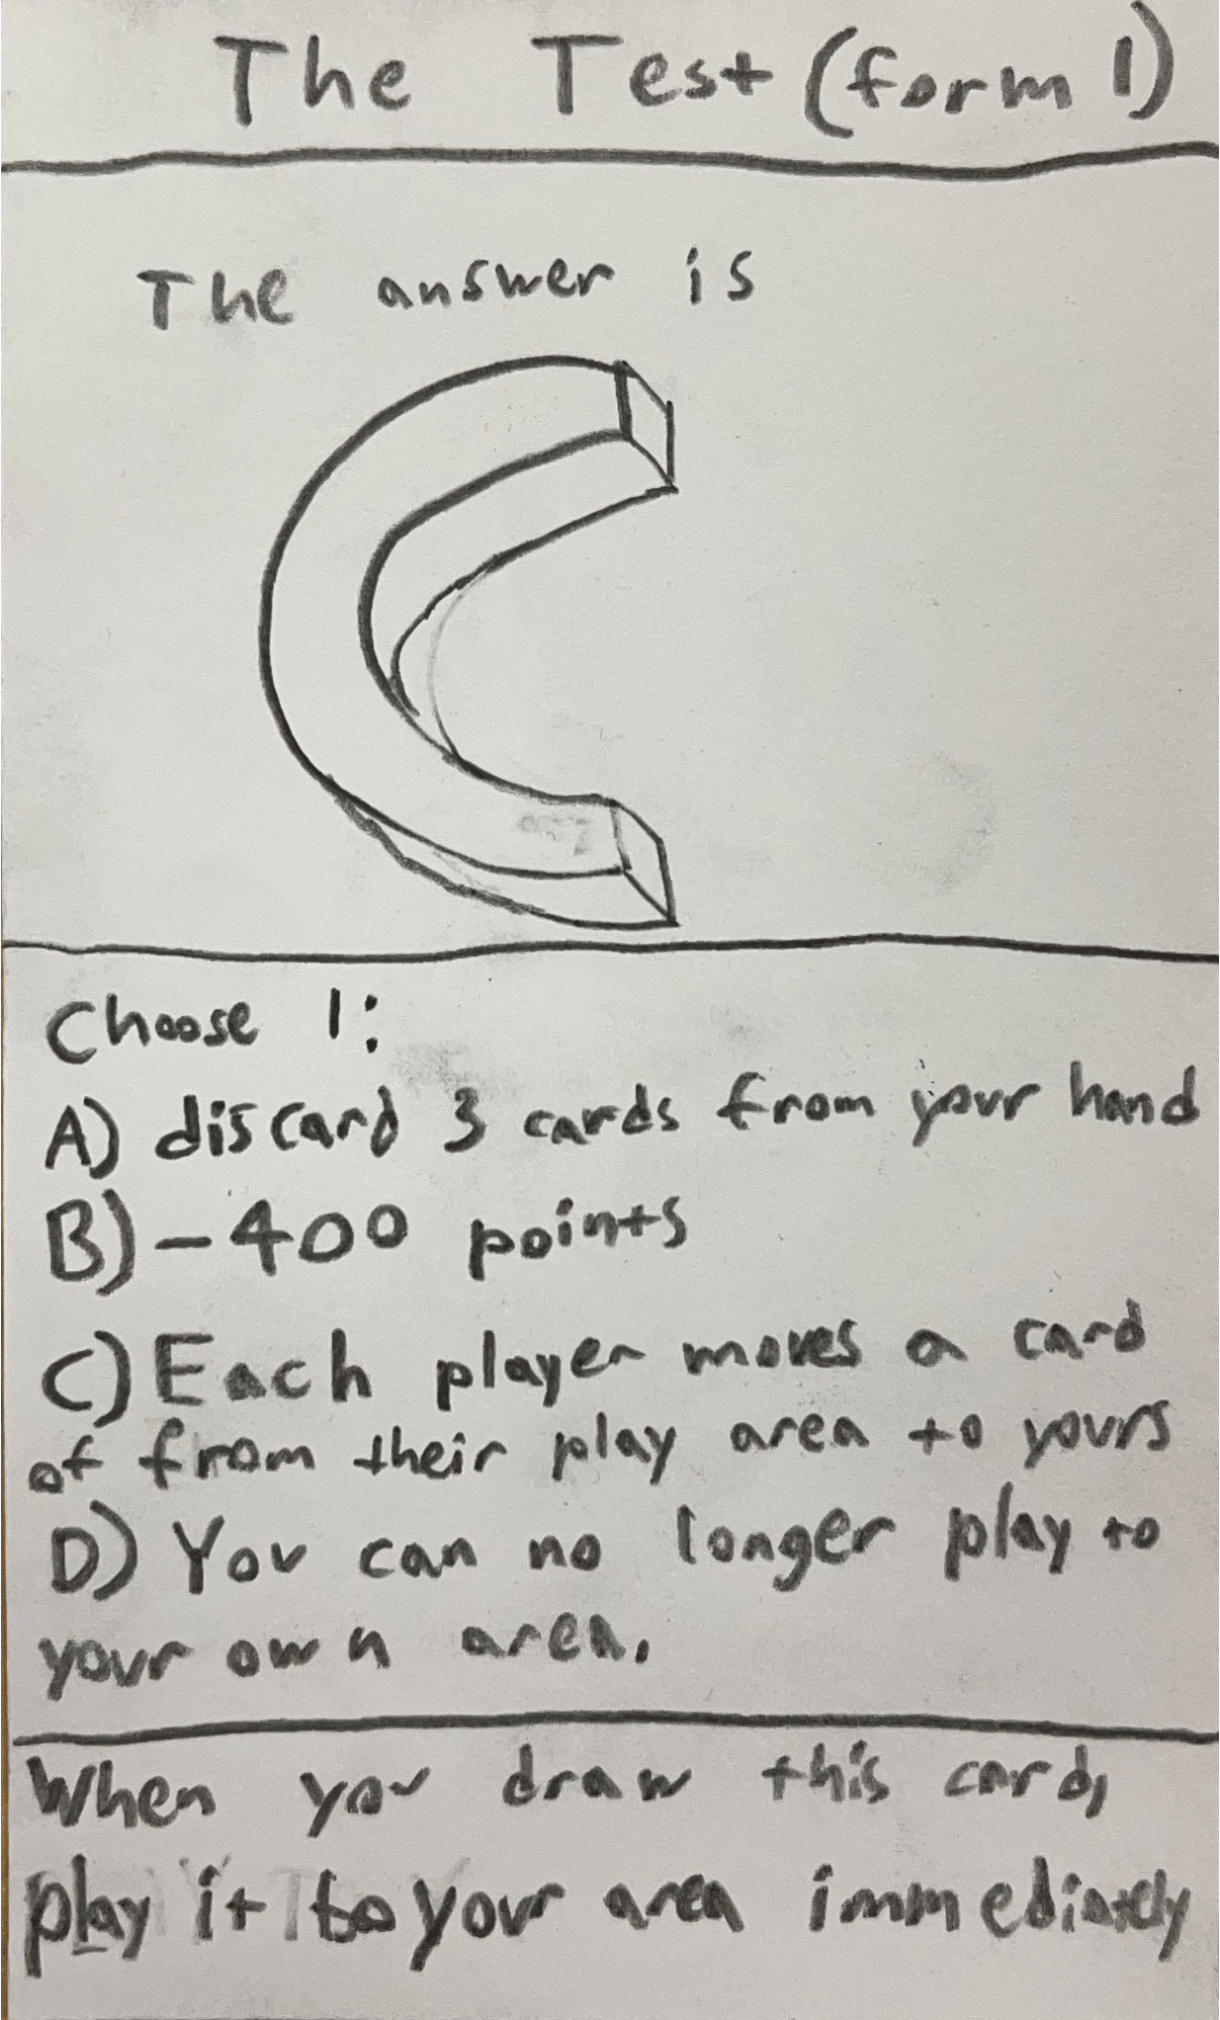 The Test (form 1)
The answer is
C
Choose 1:
A) discard 3 cards from your hand
B) -400 points
C) Each player moves a card
of from their play area to yours
D) You can no longer play to
your own area.
When you draw this card,
play it to your area immediately